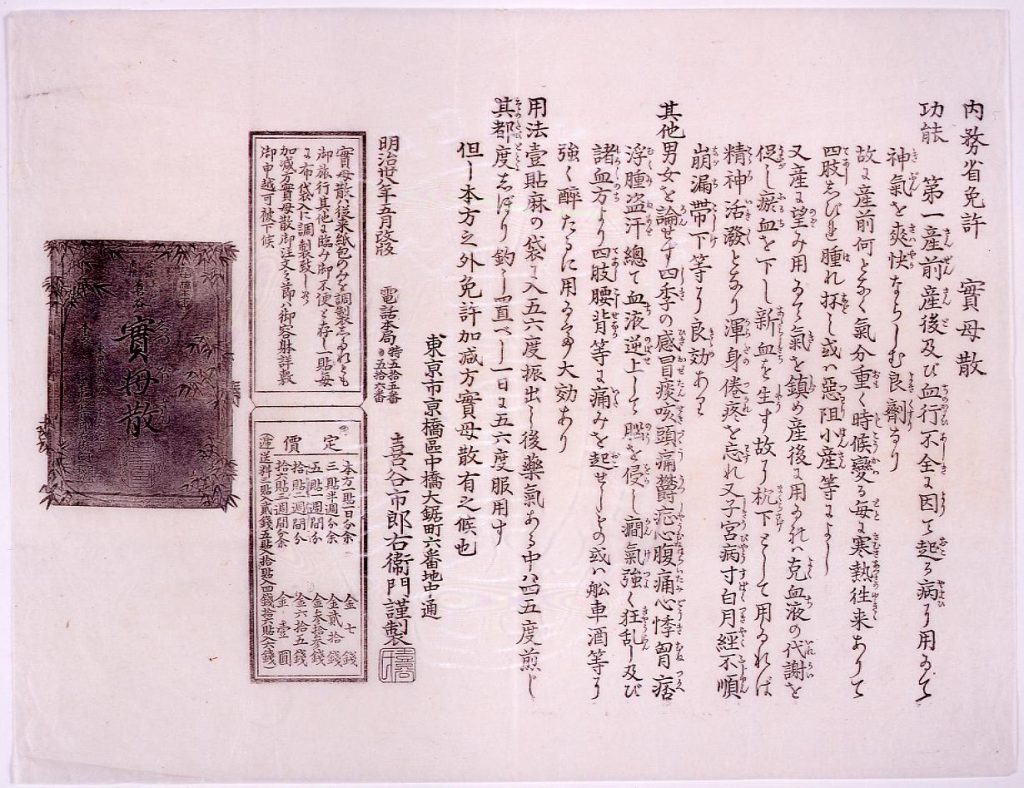 内務省免許　實母散
功能　第一産前産後及び血行不全に因て起る病に用ゐて
神氣を爽快ならしむ良劑なり
故に産前何となく氣分重く時候變る毎に寒熱徃来ありて
四肢しびれ腫れ抔し或は惡阻小産等によし
又産に望み用ゐて氣を鎮め産後に用ゐれハ克血液の代謝を
促し瘀血を下し新血を生す故に枕下として用ゐれば
精神活潑となり渾身倦疼を忘れ又子宮病寸白月經不順
崩漏帶下等に良効あり
其他男女を論せす四季の感冒痰咳頭痛欝疝心腹痛心悸胃痞
浮腫盗汗總て血液逆上して腦を侵し癇氣強く狂乱し及び
諸血方より四肢腰背等に痛みを起せしもの或ハ船車酒等に
強く醉たるに用ゐて大効あり
用法壹貼麻の袋に入五六度振出し後藥氣ある中ハ四五度煎じ
其都度しぼり釣し置べし一日に五六度服用す
但し本方之外免許加減方實母散有之候也
東京市京橋區中橋大鋸町六番地中通
明治廿八年五月改版　電話本局 特五拾五番 五拾六番　喜谷市郎右衞門謹製
實母散ハ從来紙包のみを調製三たるれとも
御旅行其他に臨み御不便と存し一貼毎
に布袋入に調製致し
加減方實母散御注文之節ハ御容躰詳敷
御申越可被下候
定價
本方一貼一日分余　金七錢
三貼半週分余　金貳拾錢
五貼一週間分　金參拾參錢
拾貼二週間分　金六拾五錢
拾六貼三週間分余　金壹圓
遞送料三貼入貳錢五貼入拾貼入四錢拾六貼入六錢
實母散